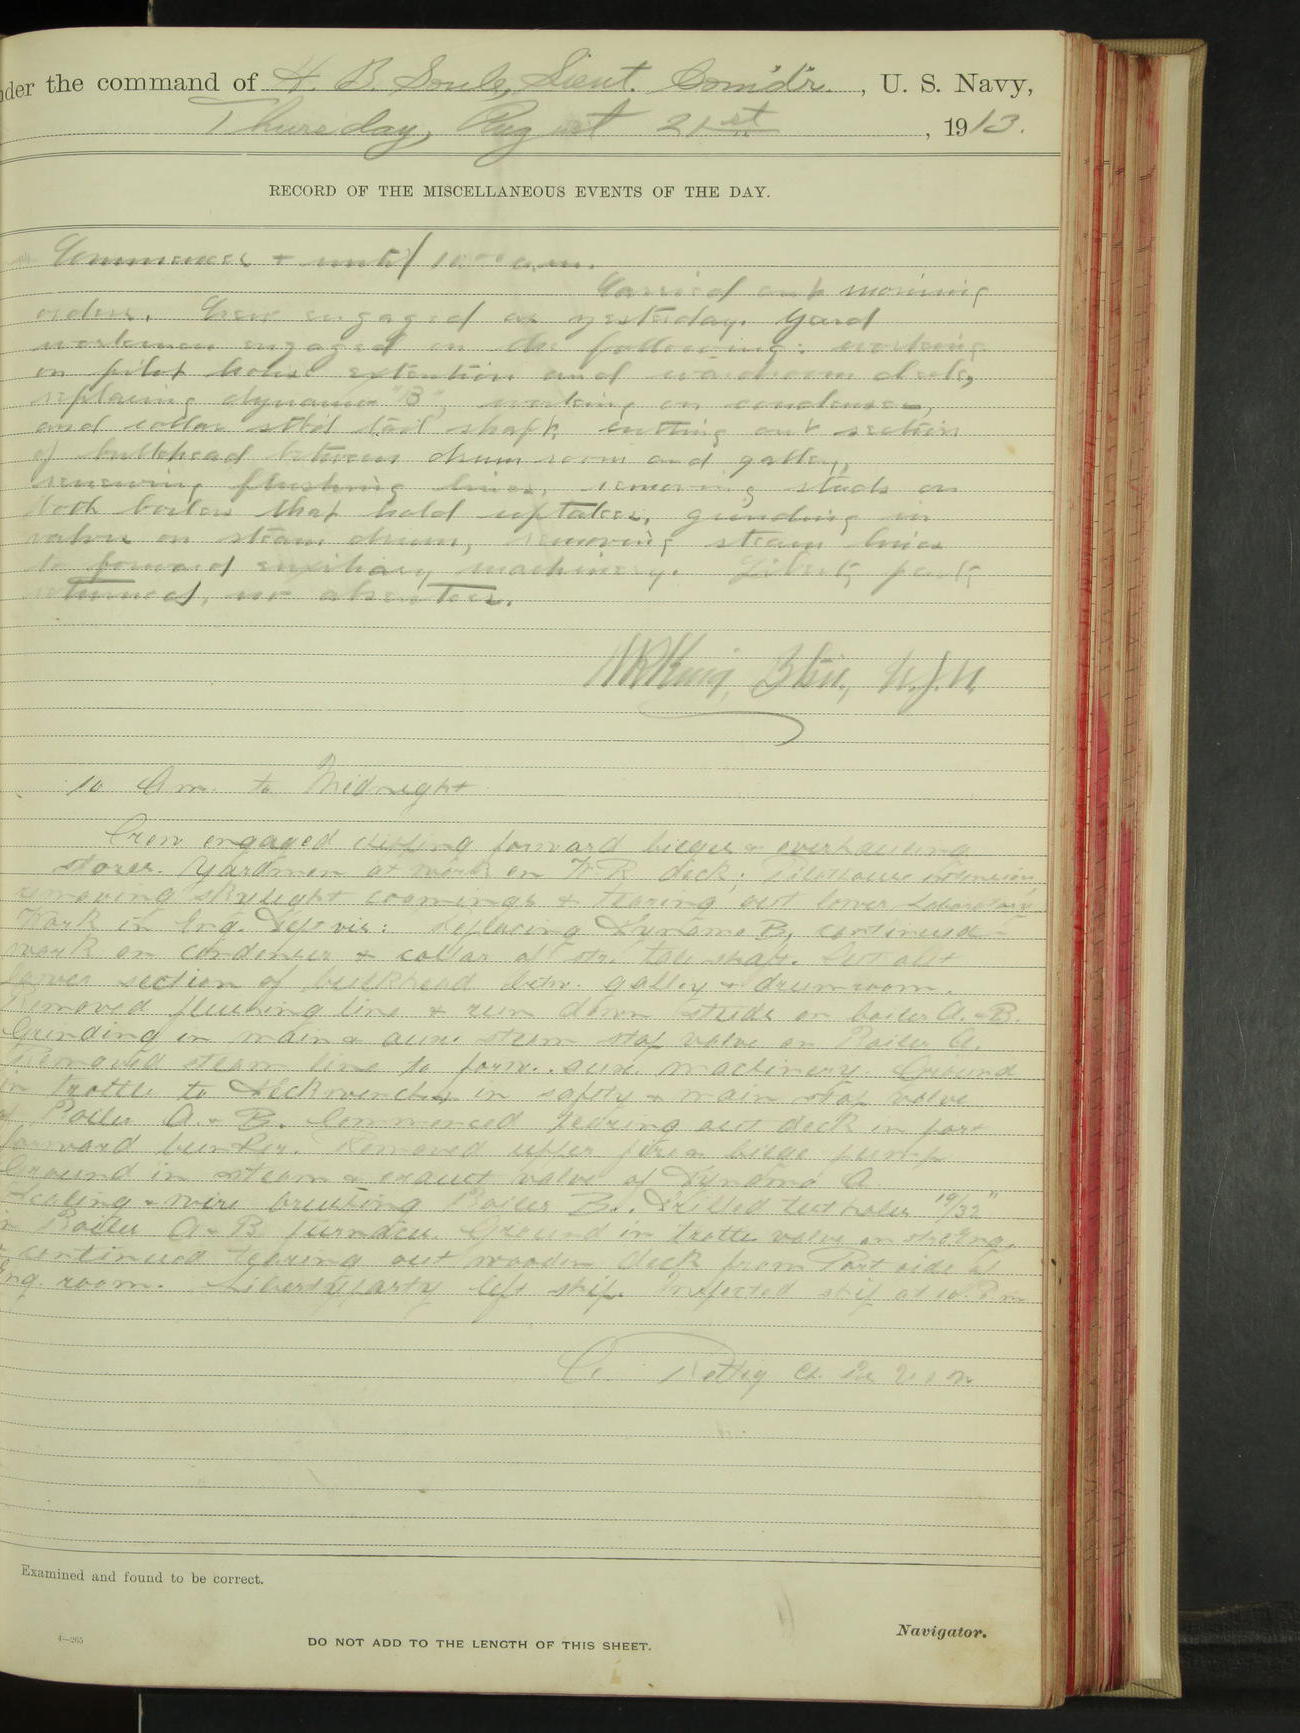 nder the command of H. B. Soule, Lieut. Comd'r. , U. S. Navy,
Thursday, August 21st , 1913.
RECORD OF THE MISCELLANEOUS EVENTS OF THE DAY.
Commences + until 10:00 a.m.
Carried out morning
orders. Crew engaged as yesterday. Yard
workmen engaged on the following: working
on pilot house extention and wardroom deck,
replacing dynamo "B", working on condenser,
and collar stb'd tail shaft, cutting out section
of bulkhead between drum room and galley,
renewing flushing lines, removing studs on
both boilers that hold uptakes, grinding in
valves on steam drum, removing steam lines
to forward auxiliary machinery. Liberty party
returned, no absentees.
Btsn, U.S.N.
10 Am. to Midnight
Crew engaged forward bilges & overhauling
stores. Yardmen at work on W.R. deck; Pilothouse extension
removing skylight coamings & tearing out lower Laboratory
Work in Eng. Dept viz: Replacing Dynamo B, continued
work on condenser & collar of str. tail shaft. Cut out
lower section of bulkhead betw. galley & drumroom.
Removed flushing line & run down studs on boiler A. & B.
Grinding in main & aux. steam stop valve on Boiler A.
Removed steam line to forw. aux. machinery. Ground
in trottle to in safety & main stop valve
of Boiler A. & B. Commenced tearing out deck in port
forward bunker. Removed upper fire & bilge pump
Ground in steam & exaust valve of Dynamo A
Scaling & wire brushing Boiler B. Drilled test holes 19/32"
in Boiler A & B furnaces. Ground in trottle valve on Str Eng.
& continued tearing out wooden deck from Port side of
Eng. room. Liberty party left ship. Inspected ship at 10. Pm
C. Rettig
Examined and found to be correct.
4—265
DO NOT ADD TO THE LENGTH OF THIS SHEET.
Navigator.